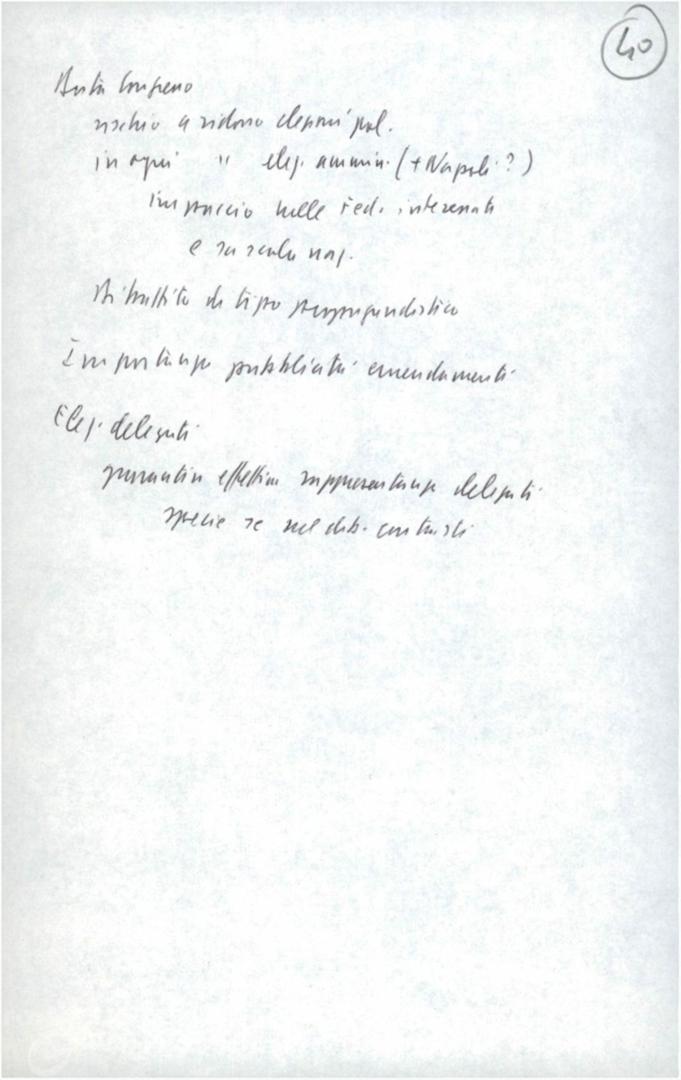 40
Data Congresso
rischio a ridosso elezioni pol.
in ogni " elez. ammin. (+ Napoli ?)
impaccio nelle fed. interessate
e su scala naz.
Dibattito di tipo propagandistico
Importanza pubblicità emendamenti
Elez. delegati
garantire effettiva rappresentanza delegati
specie se nel dib. contrasti